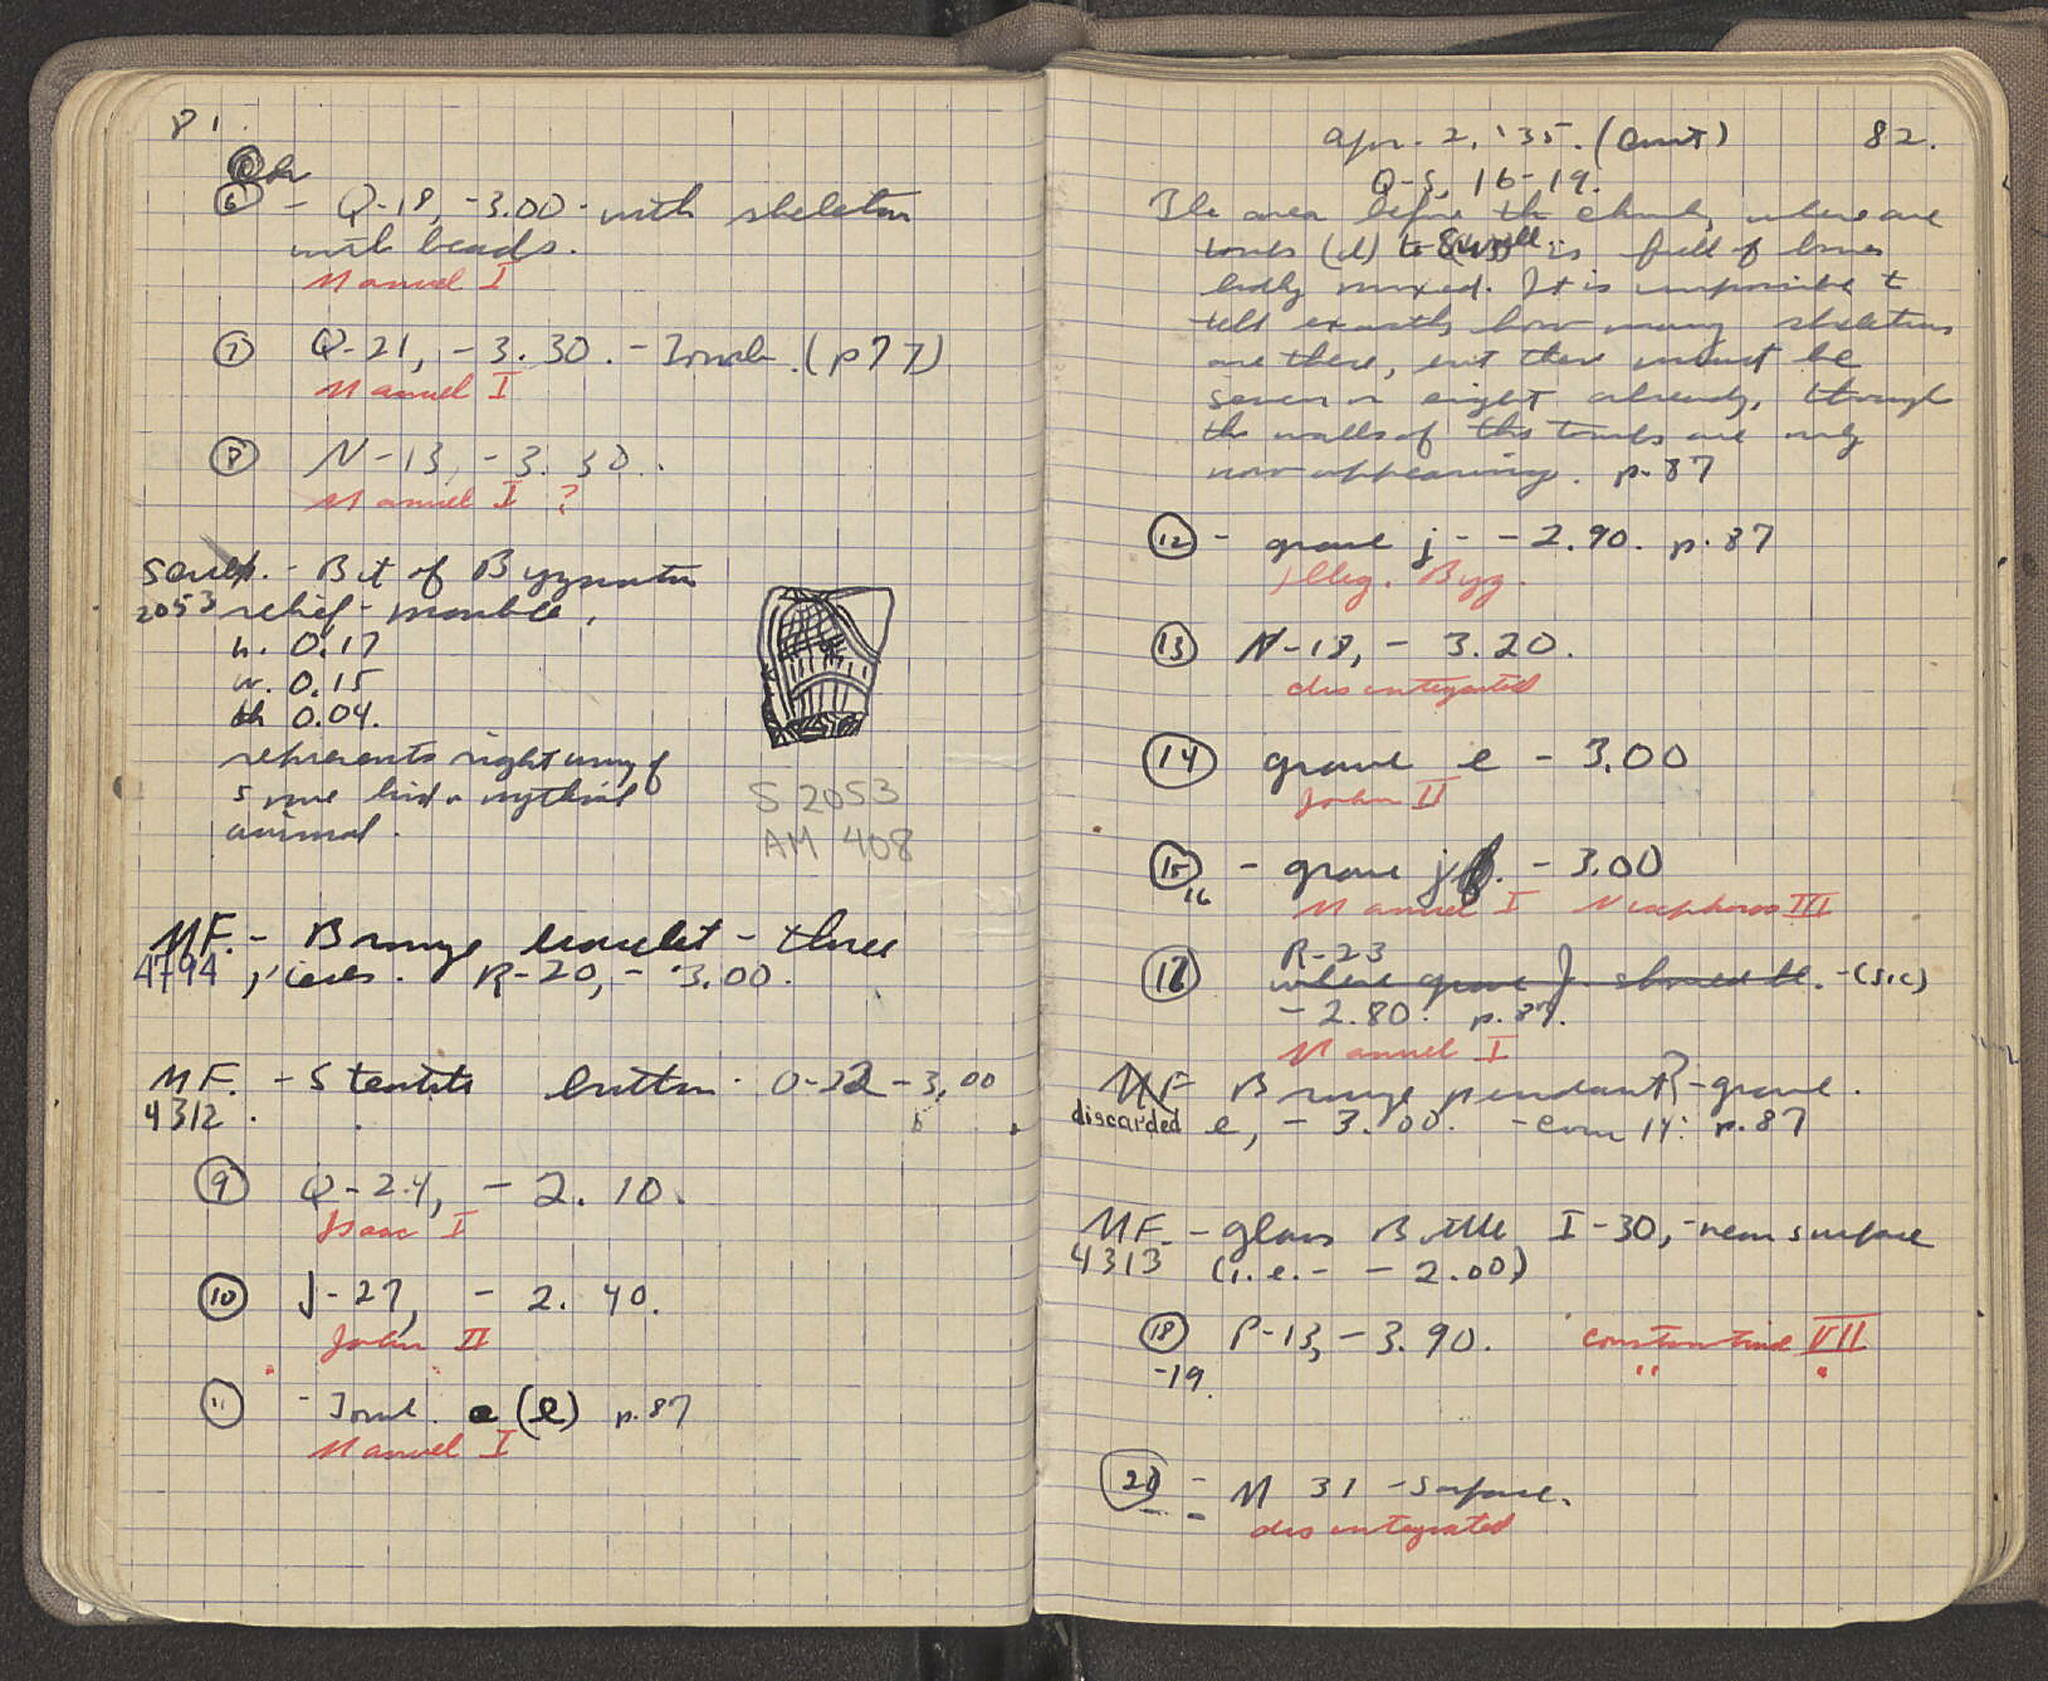 81.
⑥ - Q-18, -3.00 - with skeleton
with beads.
Manuel I
⑦ Q-21, -3.30. - Tomb. (p 77)
Manuel I
⑧ N-13, -3.30.
Manuel I ?
Sculpt. - Bit of Byzantine
2053 relief - marble.
h. 0.17
w. 0.15
th 0.04.
represents right wing of
some bird or mythical
animal.
S 2053
AM 408
MF. - Bronze bracelet - three
4794 pieces. R-20, -3.00.
MF. - Steatite button - O-22 -3.00
4312.
⑨ Q-24, -2.10.
Isaac I
⑩ J-27, -2.40.
John II
⑪ - Tomb. (l) p. 87
Manuel I
Apr. 2, '35. (Cont) 82.
Q-S, 16-19.
The area before the church, where are
tombs (d) to is full of bones
badly mixed. It is impossible to
tell exactly how many skeletons
are there, but there must be
seven or eight already, though
the walls of the tombs are only
now appearing. p. 87
⑫ - grave j - -2.90. p. 87
Illeg. Byz.
⑬ N-18, -3.20.
disintegrated
⑭ grave e -3.00
John II
⑮ - grave j. -3.00
16 Manuel I Nicephoros III
R-23
⑰ where grave j. should be. - (sic)
-2.80. p. 87.
Manuel I
MF Bronze pendant? - grave.
discarded e, -3.00. - Coin 14: p. 87
MF. - glass Bottle I-30, - near surface
4313 (i.e. - -2.00)
⑱ P-13, -3.90. Constantine VII
-19. " "
⑳ - M 31 - Surface.
disintegrated